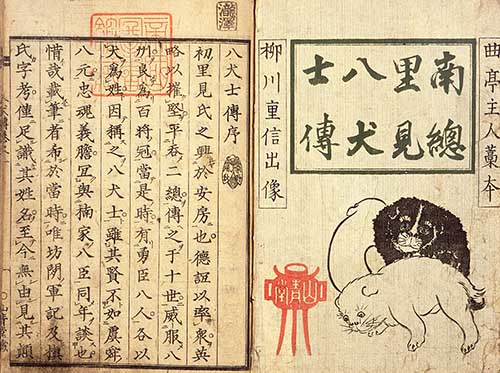 曲亭主人藁本
南總
里見
八犬
士傳
柳川重信出像
山青堂
瀧澤
八犬士傳序
初里見氏之興於安房也德誼以率衆英
略以摧堅平呑二總傳之于十世威服八
州良爲百將冠當是時有勇臣八人各以
犬爲姓因稱之八犬士雖其賢不如虞舜
八元忠魂義膽冝與楠家八臣同年談也
惜哉載筆者希於當時唯坊閒軍記及槙
氏字考僅足識其姓名至今無由見其顛